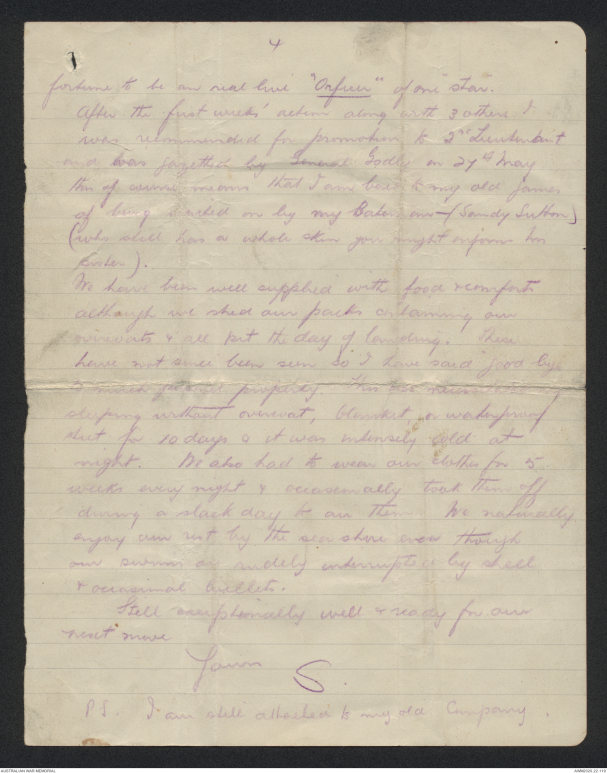 4
fortune to be an real live "Orficer" of one star.
After the first weeks' action along with 3 others I
was recommended for promotion to 2nd Lieutenant
and was gazetted by General Godley on 27th May
this of course means that I am back to my old
of being waited on by my Batman - (Sandy Sutton)
(who still has a whole skin you might inform his
sister).
We have been well supplied with food & comforts
although we shed our packs containing our
overcoats & all kit the day of landing. These
have not since been seen so I have said good bye
to much property. This
sleeping without overcoat, blanket, or waterproof
sheet for 10 days & it was intensely cold at
night. We also had to wear our clothes for 5
weeks every night & occasionally took them off
during a slack day to air them. We naturally
enjoy our rest by the sea shore even though
our swims are rudely interrupted by shell
& occasional bullets.
Still exceptionally well & ready for our
next move
Yours
S.
P.S. I am still attached to my old Company.
AUSTRALIAN WAR MEMORIAL